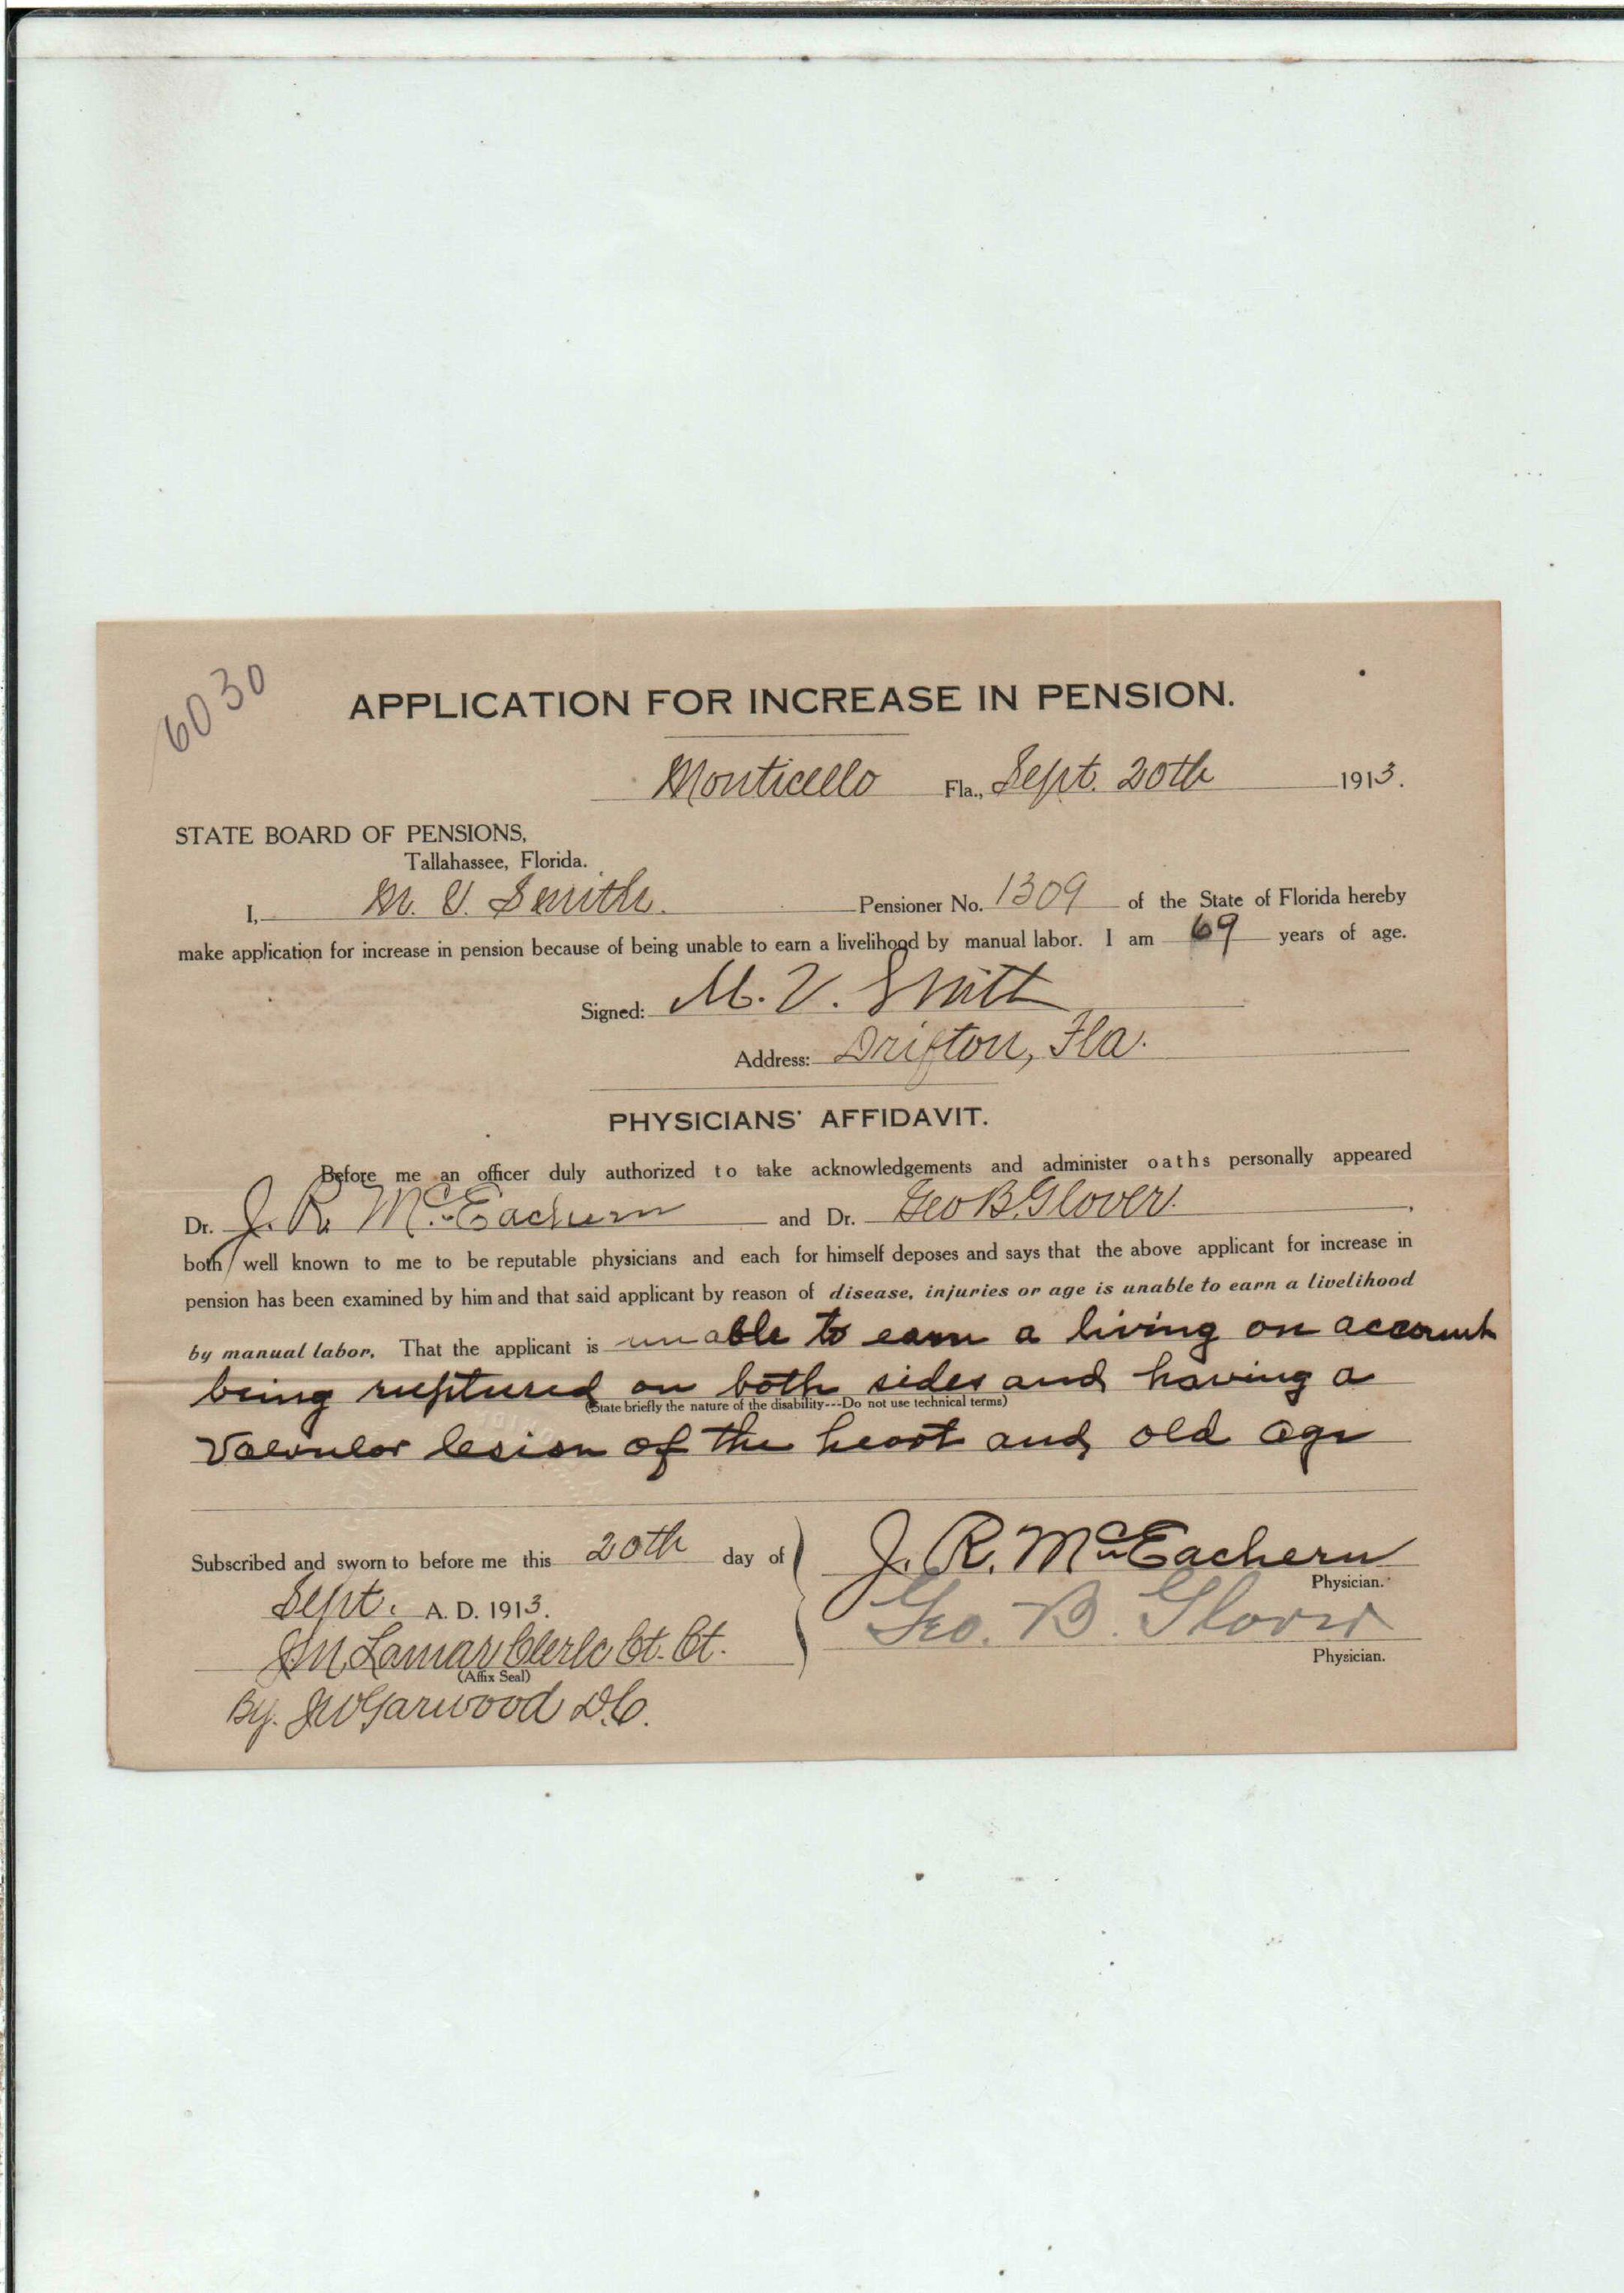 6030
APPLICATION FOR INCREASE IN PENSION.
Monticello Fla., Sept. 20th 1913.
STATE BOARD OF PENSIONS,
Tallahassee, Florida.
I, M. V. Smith. Pensioner No. 1309 of the State of Florida hereby
make application for increase in pension because of being unable to earn a livelihood by manual labor. I am 69 years of age.
Signed: M. V. Smith
Address: Drifton, Fla.
PHYSICIANS' AFFIDAVIT.
Before me an officer duly authorized to take acknowledgements and administer oaths personally appeared
Dr. J. R. McEachern and Dr. Geo B. Glover.
both well known to me to be reputable physicians and each for himself deposes and says that the above applicant for increase in
pension has been examined by him and that said applicant by reason of disease, injuries or age is unable to earn a livelihood
by manual labor. That the applicant is unable to earn a living on account
being ruptured on both sides and having a
(State briefly the nature of the disability---Do not use technical terms)
Valvular lesion of the heart and old age
Subscribed and sworn to before me this 20th day of
Sept. A. D. 1913.
J. R. McEachern
Physician.
Geo. B. Glover
Physician.
Lamar Clerk Ct. Ct.
(Affix Seal)
By. JW Garwood D.C.